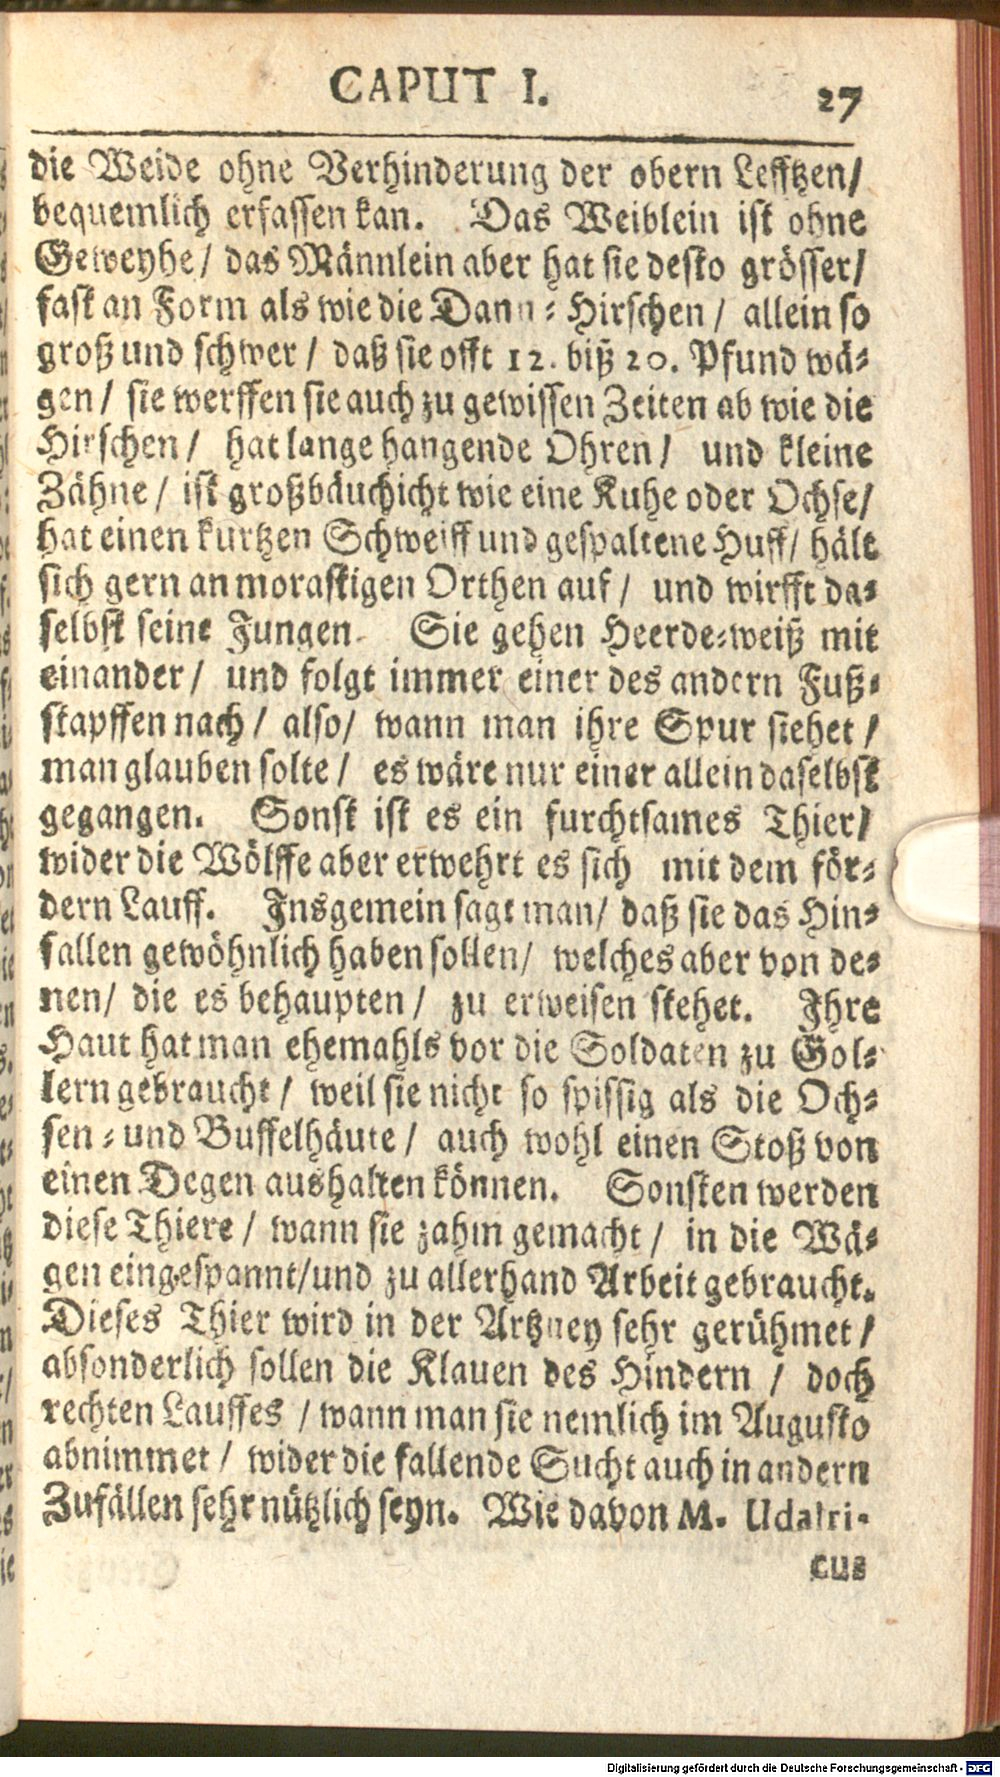 CAPUT I. 27
die Weide ohne Verhinderung der obern Lefftzen/
bequemlich erfassen kan. Das Weiblein ist ohne
Geweyhe/ das Männlein aber hat sie desto grösser/
fast an Form als wie die Dann-Hirschen/ allein so
groß und schwer/ daß sie offt 12. biß 20. Pfund wä-
gen/ sie werffen sie auch zu gewissen Zeiten ab wie die
Hirschen/ hat lange hangende Ohren/ und kleine
Zähne/ ist großbäuchicht wie eine Kuhe oder Ochse/
hat einen kurtzen Schweiff und gespaltene Huff/ hält
sich gern an morastigen Orthen auf/ und wirfft da-
selbst seine Jungen. Sie gehen Heerde-weiß mit
einander/ und folgt immer einer des andern Fuß-
stapffen nach/ also/ wann man ihre Spur siehet/
man glauben solte/ es wäre nur einer allein daselbst
gegangen. Sonst ist es ein furchtsames Thier/
wider die Wölffe aber erwehrt es sich mit dem för-
dern Lauff. Insgemein sagt man/ daß sie das Hin-
fallen gewöhnlich haben sollen/ welches aber von de-
nen/ die es behaupten/ zu erweisen stehet. Ihre
Haut hat man ehemahls vor die Soldaten zu Gol-
lern gebraucht/ weil sie nicht so spissig als die Och-
sen- und Buffelhäute/ auch wohl einen Stoß von
einen Degen aushalten können. Sonsten werden
diese Thiere/ wann sie zahm gemacht/ in die Wä-
gen eingespannt/und zu allerhand Arbeit gebraucht.
Dieses Thier wird in der Artzney sehr gerühmet/
absonderlich sollen die Klauen des Hindern/ doch
rechten Lauffes/ wann man sie nemlich im Augusto
abnimmet/ wider die fallende Sucht auch in andern
Zufällen sehr nützlich seyn. Wie davon M. Udalri-
cus
Digitalisierung gefördert durch die Deutsche Forschungsgemeinschaft - DFG